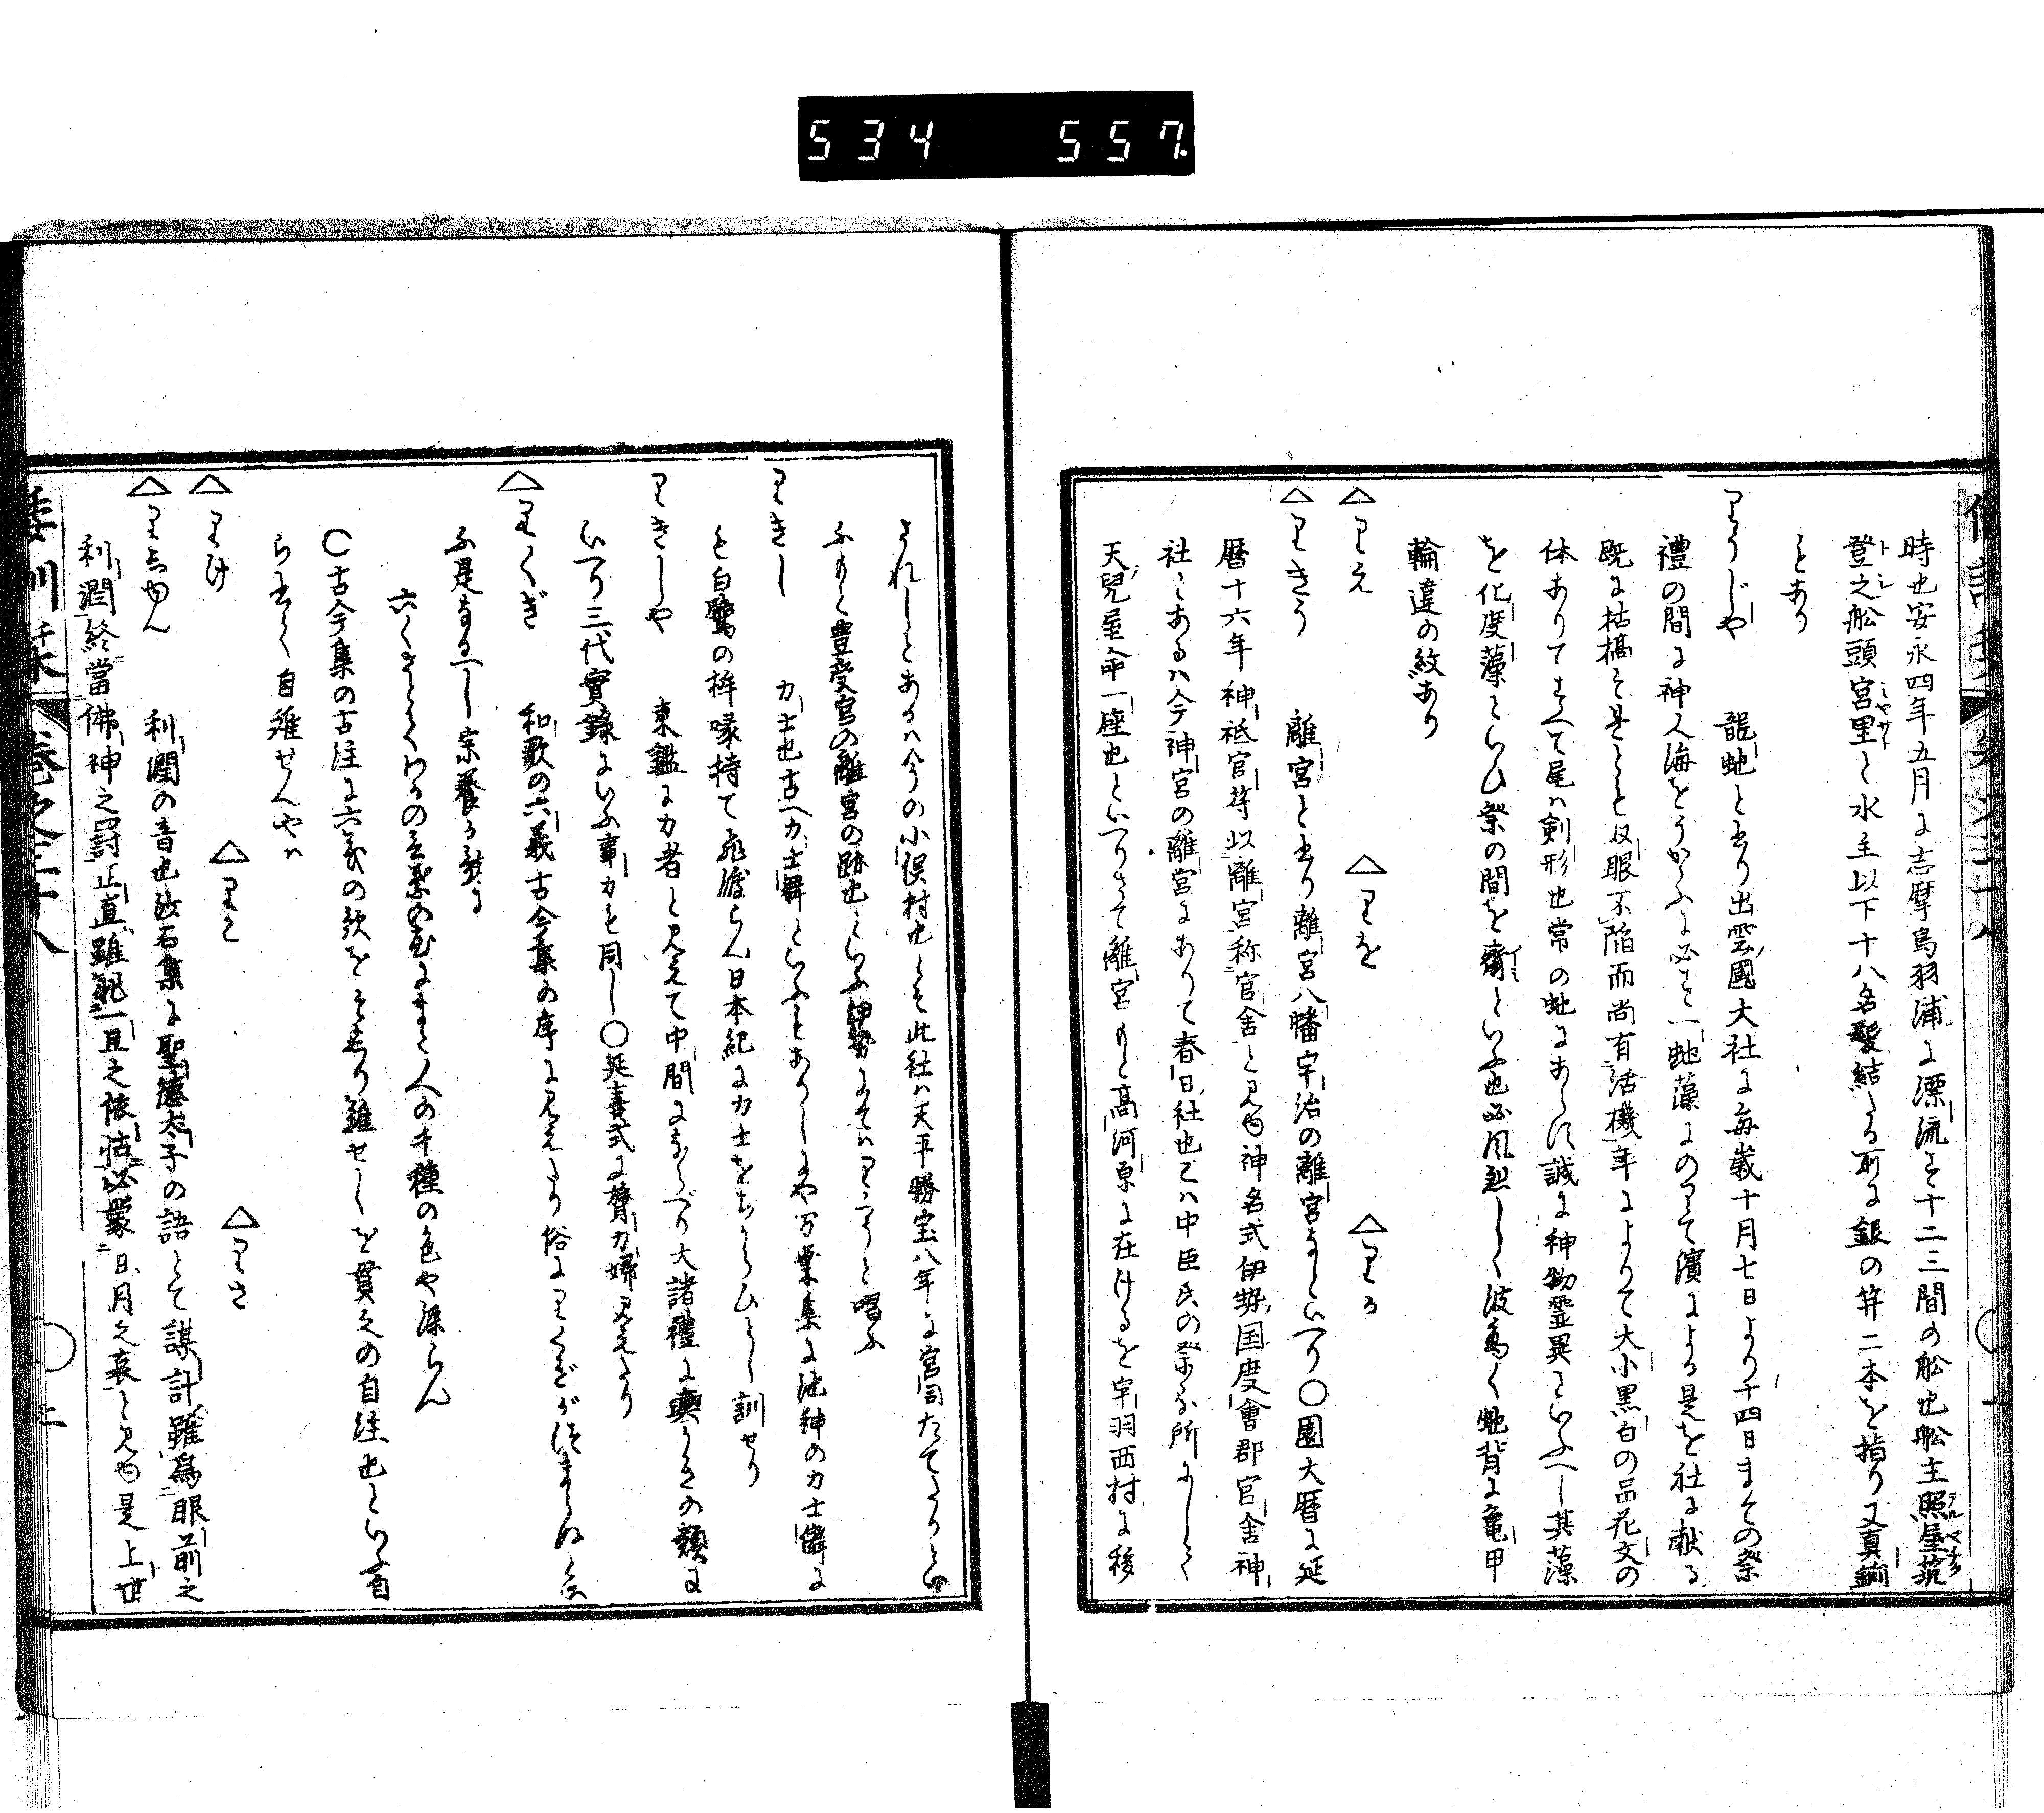 534 557.
時也安永四年五月に志摩鳥羽浦に漂流す十二三間の舩也舩主照屋筑
登之舩頭宮里と水主以下十八名髮結たる所に銀の笄二本を指り又真鍮
とあり
りうじや 龍虵と書り出雲國大社に毎歳十月七日より十四日まての祭
禮の間に神人海をうかゝふに必す一虵藻にのりて濱による是を社に献る
既に枯槁す是とも双眼不陥而尚有活機年によりて大小黒白の品花文の
体ありてすへて尾ハ剣形也常の虵にあらす誠に神物霊異といふへし其藻
を化度藻といひ祭の間を齋といふ也必風烈しく波高く虵背に亀甲
輪違の紋あり
△りえ △りを △りか
△りきう 離宮と書り離宮八幡宇治の離宮なといへり〇園大暦に延
暦十六年神祇官符以離宮称官舎と見ゆ神名式伊勢国度會郡官舎神
社とあるハ今神宮の離宮にありて春日社也こハ中臣氏の祭る所にして
天兒屋命一座也といへりさて離宮もと高河原に在けるを宇羽西村に移
されしとあるハ今の小俣村也とそ此社ハ天平勝宝八年に宮司たてたりとい
ふもと豊受宮の離宮の跡也といふ伊勢にてハりうと唱ふ
りきし 力士也古へ力士舞といふことありしにや万葉集に池神の力士儛に
も白鷺の桙啄持て飛渡らん日本紀に力士をちからひとと訓せり
りきしや 東鑑に力者と見えて中間にならべり大諸禮に輿かきの類に
いへり三代實録にいふ事力も同し〇延喜式に膂力婦見えたり
△りくぎ 和歌の六義古今集の序に見えたり俗にりくぎがつまらぬといふ
ふ是なるへし宗養か哥に
六くさとくわかの言葉の色にまた人の千種の色や深らん
〇古今集の古注に六義の歌をそしり難せしを貫之の自註也といへり自
ら書て自難せんやハ
△りけ △りこ △りさ
△りじゆん 利潤の音也沙石集に聖徳太子の語とて謀計雖為眼前之
利潤終當佛神之罸正直雖非一旦之依怙必蒙日月之哀と見ゆ是上世
倭訓栞 巻之三十八